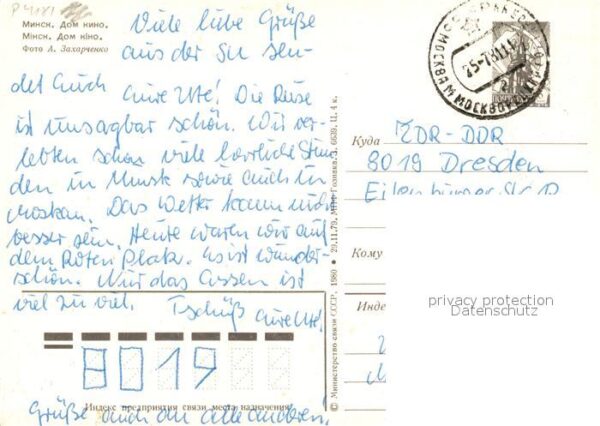 Минск. Дом кино.
Мінск. Дом кіно.
Фото А. Захарченко
Viele liebe Grüße
aus der SU sen-
det Euch
Eure Ute! Die Reise
ist unsagbar schön. Wir ver-
lebten schon viele herrliche Stun
den in Minsk sowie auch in
Moskau. Das Wetter kann nicht
besser sein. Heute waren wir auf
dem Roten Platz. Es ist wunder-
schön. Nur das Essen ist
viel zu viel. Tschüß Eure Ute!
8019
Индекс предприятия связи места назначения
Grüße auch an alle anderen!
© Министерство связи СССР, 1980 • 29.11.79. МПФ Гознака. З. 6639. Ц. 4 к.
МОСКВА
Куда DDR
8019 Dresden
Кому
Инде
privacy protection
Datenschutz